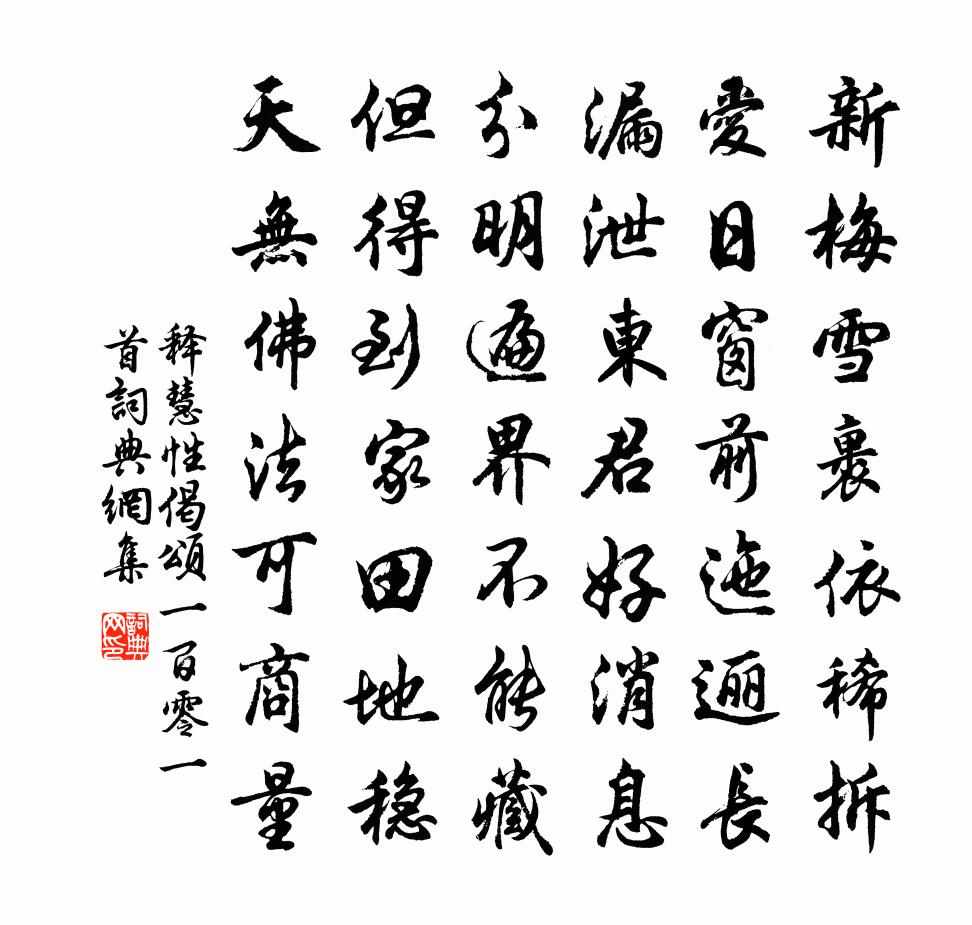 新梅雪裹依稀拆
愛日窗前迤逦長
漏泄東君好消息
分明遍界不能藏
但得到家田地穩
天無佛法可商量
释慧性偈頌一百零一
首詞典網集
詞典网印